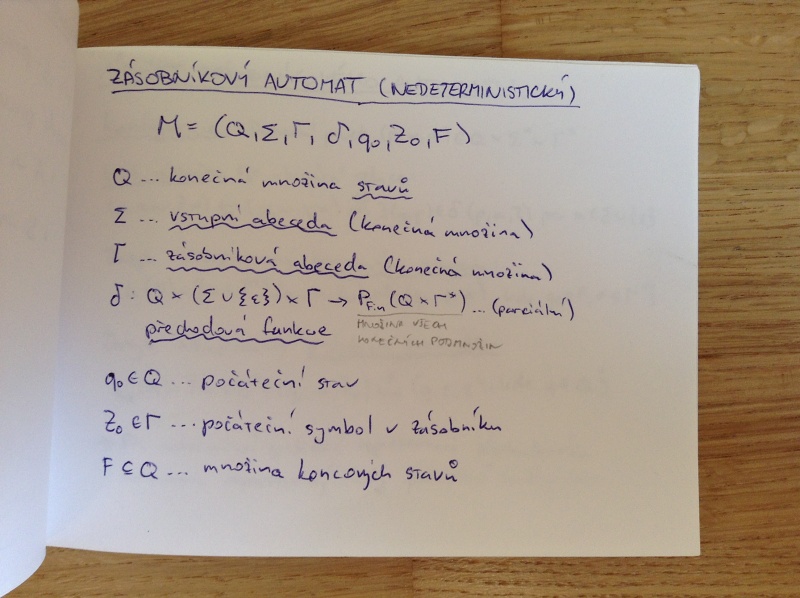 ZÁSOBNÍKOVÝ AUTOMAT (NEDETERMINISTICKÝ)
M = (Q, Σ, Γ, δ, q₀, Z₀, F)
Q ... konečná množina stavů
Σ ... vstupní abeceda (konečná množina)
Γ ... zásobníková abeceda (konečná množina)
δ : Q × (Σ ∪ {ε}) × Γ → P_Fin (Q × Γ*) ... (parciální)
přechodová funkce
MNOŽINA VŠECH
KONEČNÝCH PODMNOŽIN
q₀ ∈ Q ... počáteční stav
Z₀ ∈ Γ ... počáteční symbol v zásobníku
F ⊆ Q ... množina koncových stavů